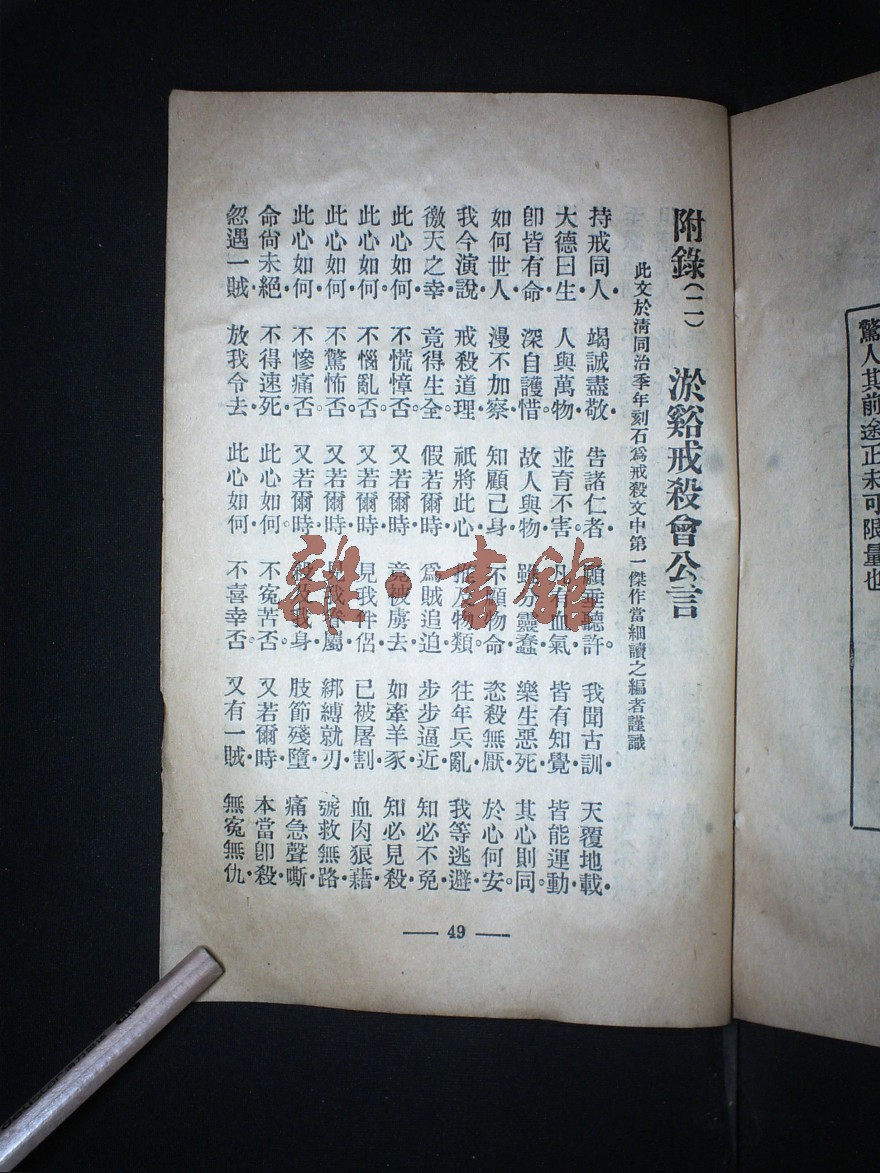 驚人其前途正未可限量也
附錄(二) 淤谿戒殺會公言
此文於淸同治季年刻石爲戒殺文中第一傑作當細讀之編者謹識
持戒同人・竭誠盡敬・告諸仁者・願垂聽許。我聞古訓・天覆地載・
大德曰生・人與萬物・並育不害・凡有血氣・皆有知覺・皆能運動・
卽皆有命・深自護惜。故人與物・雖分靈蠢・樂生惡死・其心則同。
如何世人・漫不加察・知顧己身・不顧物命・恣殺無厭・於心何安。
我今演說・戒殺道理・祇將此心・推及物類。往年兵亂・我等逃避・
徼天之幸・竟得生全。假若爾時・爲賊追迫・步步逼近・知必不免・
此心如何・不慌慞否。又若爾時・竟被虜去・如牽羊豕・知必見殺・
此心如何・不惱亂否。又若爾時・見我伴侶・已被屠割・血肉狼藉・
此心如何・不驚怖否。又若爾時・見我眷屬・綁縛就刃・號救無路・
此心如何・不慘痛否。又若爾時・殺及我身・肢節殘墮・痛急聲嘶・
命尚未絕・不得速死・此心如何。不冤苦否。又若爾時・本當卽殺・
忽遇一賊・放我令去・此心如何・不喜幸否・又有一賊・無冤無仇・
— 49 —
雜·書館